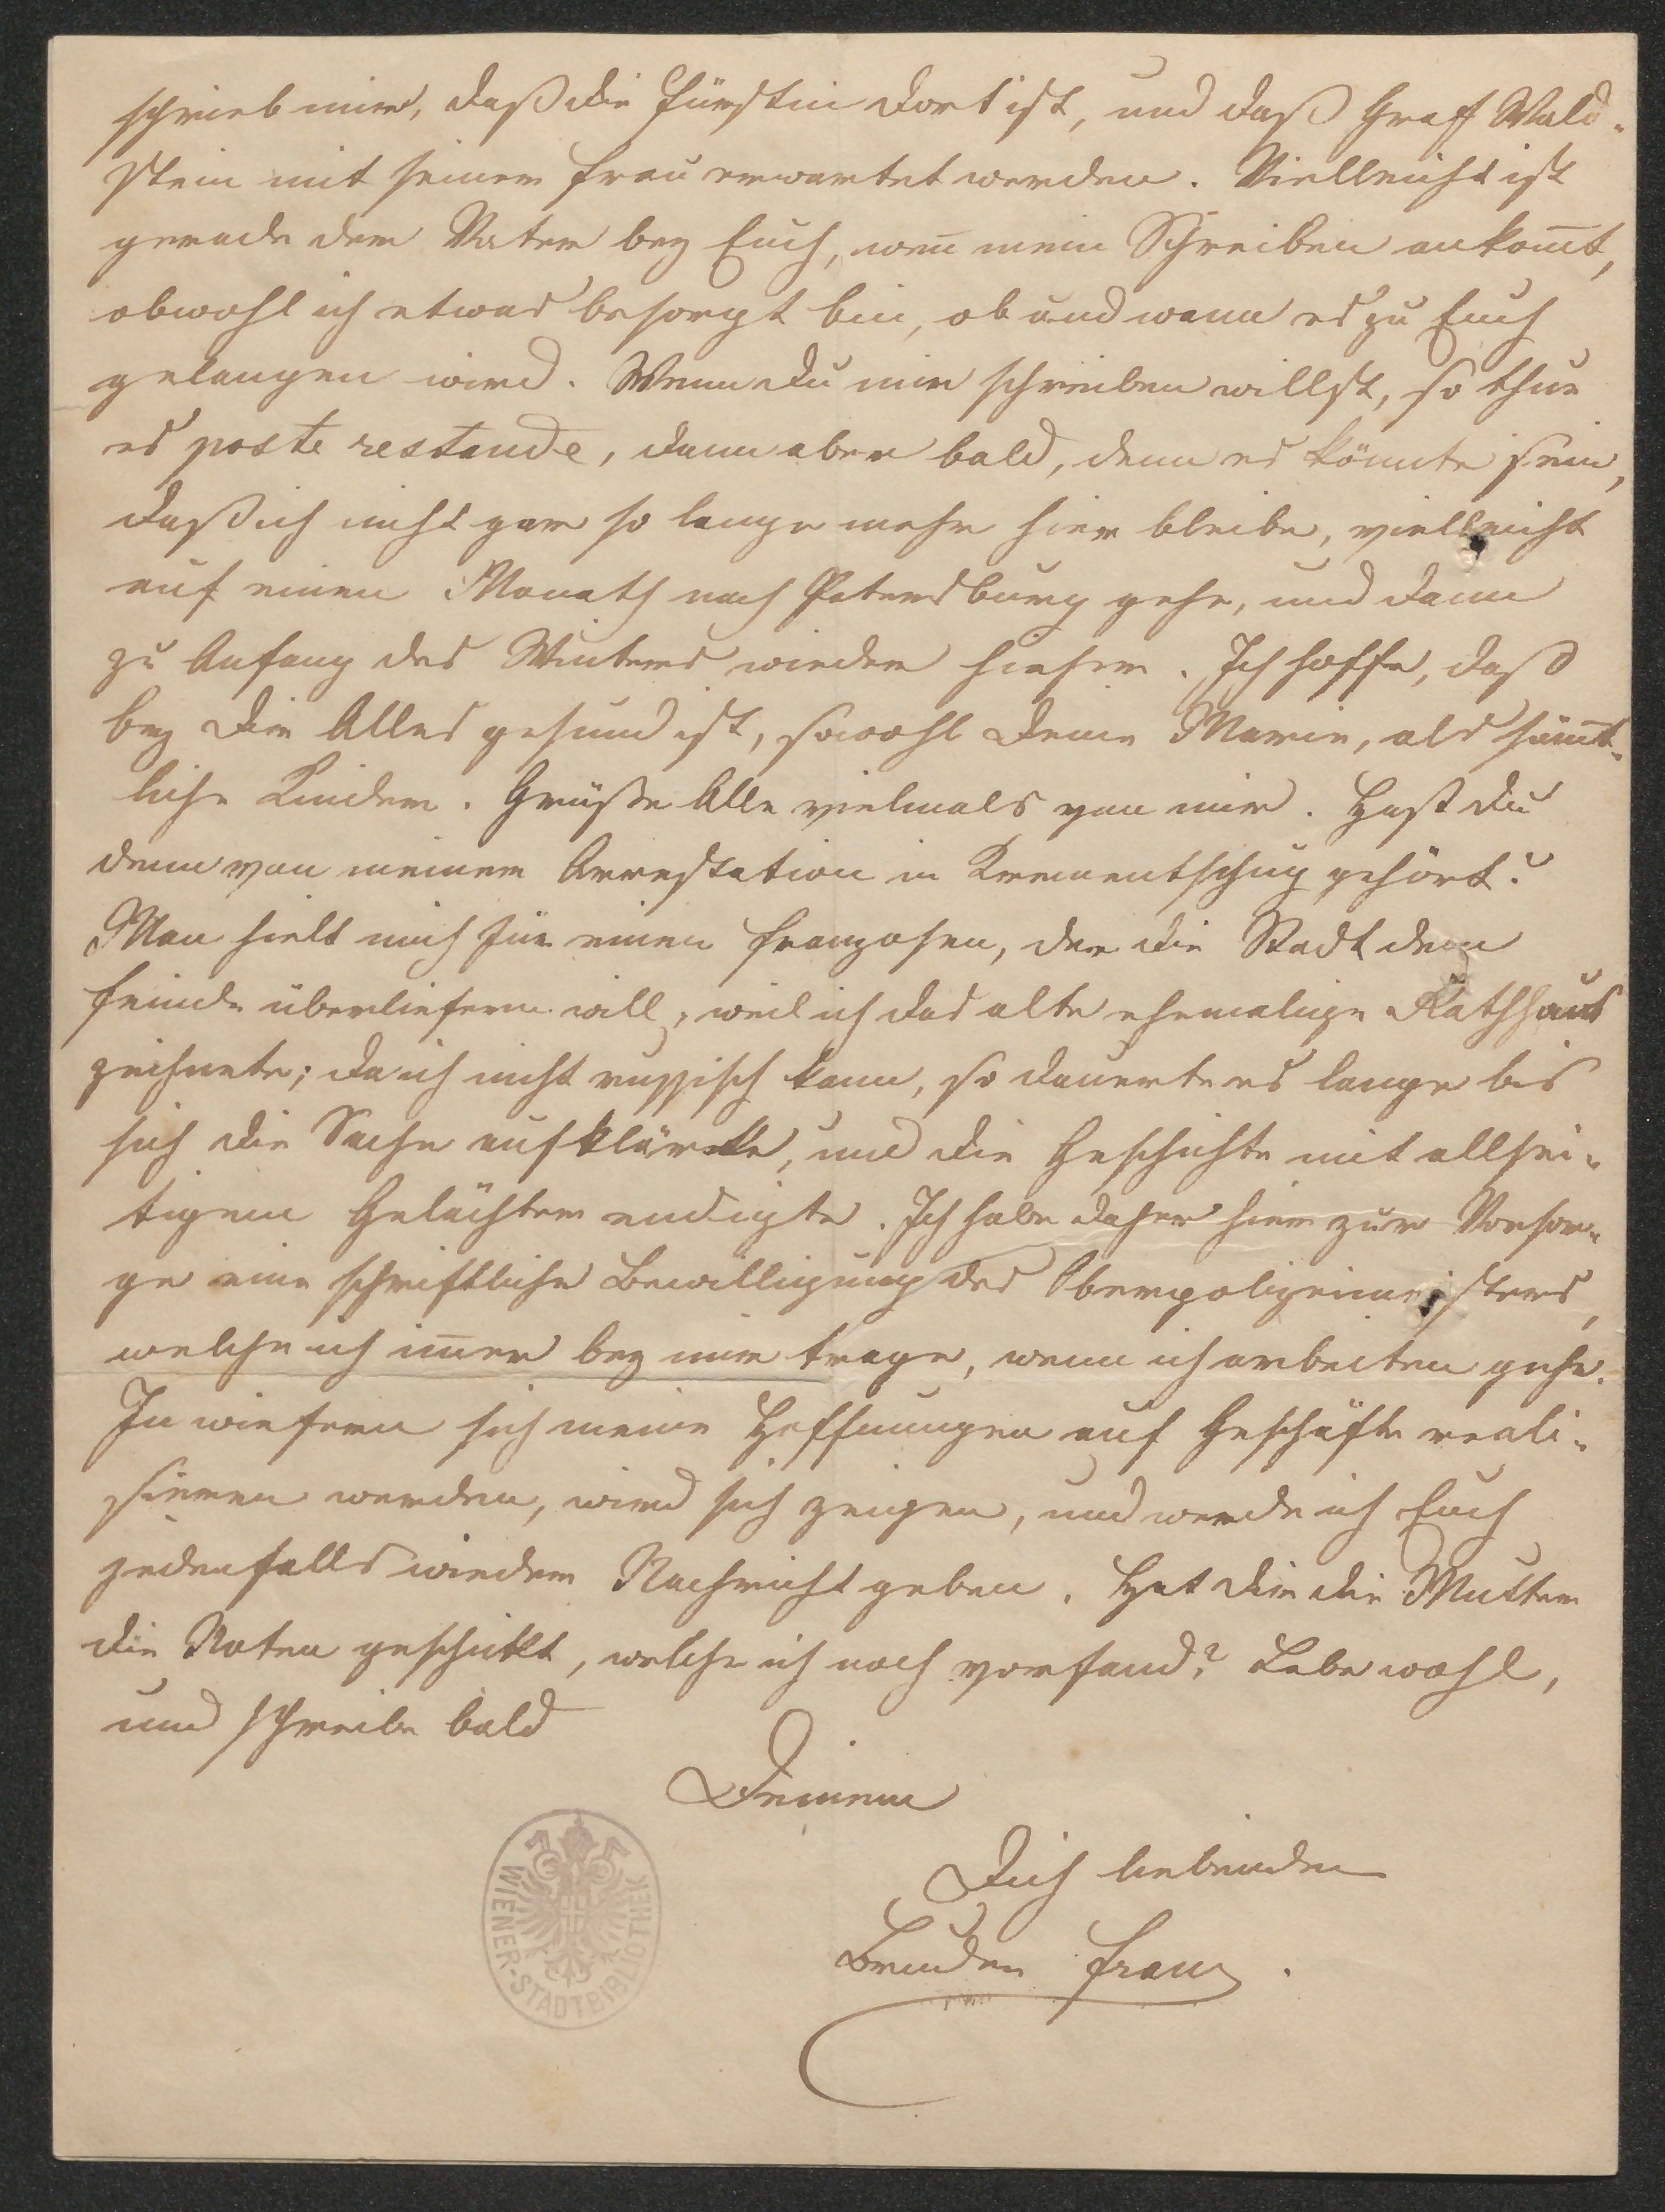 schrieb mir, daß die Fürstin dort ist, und daß Graf Wald-
stein mit seiner Frau erwartet werden. Vielleicht ist
gerade der Vater bey Euch, weñ mein Schreiben ankom̄t,
obwohl ich etwas besorgt bin, ob und wann es zu Euch
gelangen wird. Wenn du mir schreiben willst, so thue
es poste restande, dann aber bald, denn es könnte sein,
daß ich nicht gar so lange mehr hier bleibe, vielleicht
auf einen Monath nach Petersburg gehe, und dann
zu Anfang des Winters wieder hieher. Ich hoffe, daß
bey Dir Alles gesund ist, sowohl Deine Marie, als säm̄t-
liche Kinder. Grüße Alle vielmals von mir. Hast du
denn von meiner Arrestation in Krementschug gehört?
Man hielt mich für einen Franzosen, der die Stadt dem
Feinde überliefern will, weil ich das alte ehemalige Rathhaus
zeichnete; da ich nicht russisch kann, so dauerte es lange bis
sich die Sache aufklärte, und die Geschichte mit allsei-
tigem Gelächter endigte. Ich habe daher hier zur Vorsor-
ge eine schriftliche Bewilligung des Oberpolizeimeisters,
welche ich im̄er bey mir trage, wenn ich arbeiten gehe.
In wiefern sich meine Hoffnungen auf Geschäfte reali-
sieren werden, wird sich zeigen, und werde ich Euch
jedenfalls wieder Nachricht geben. Hat dir die Mutter
die Noten geschickt, welche ich noch vorfand? Lebe wohl,
und schreibe bald
Deinem
Dich liebenden
Bruder Franz.
WIENER-STADTBIBLIOTHEK